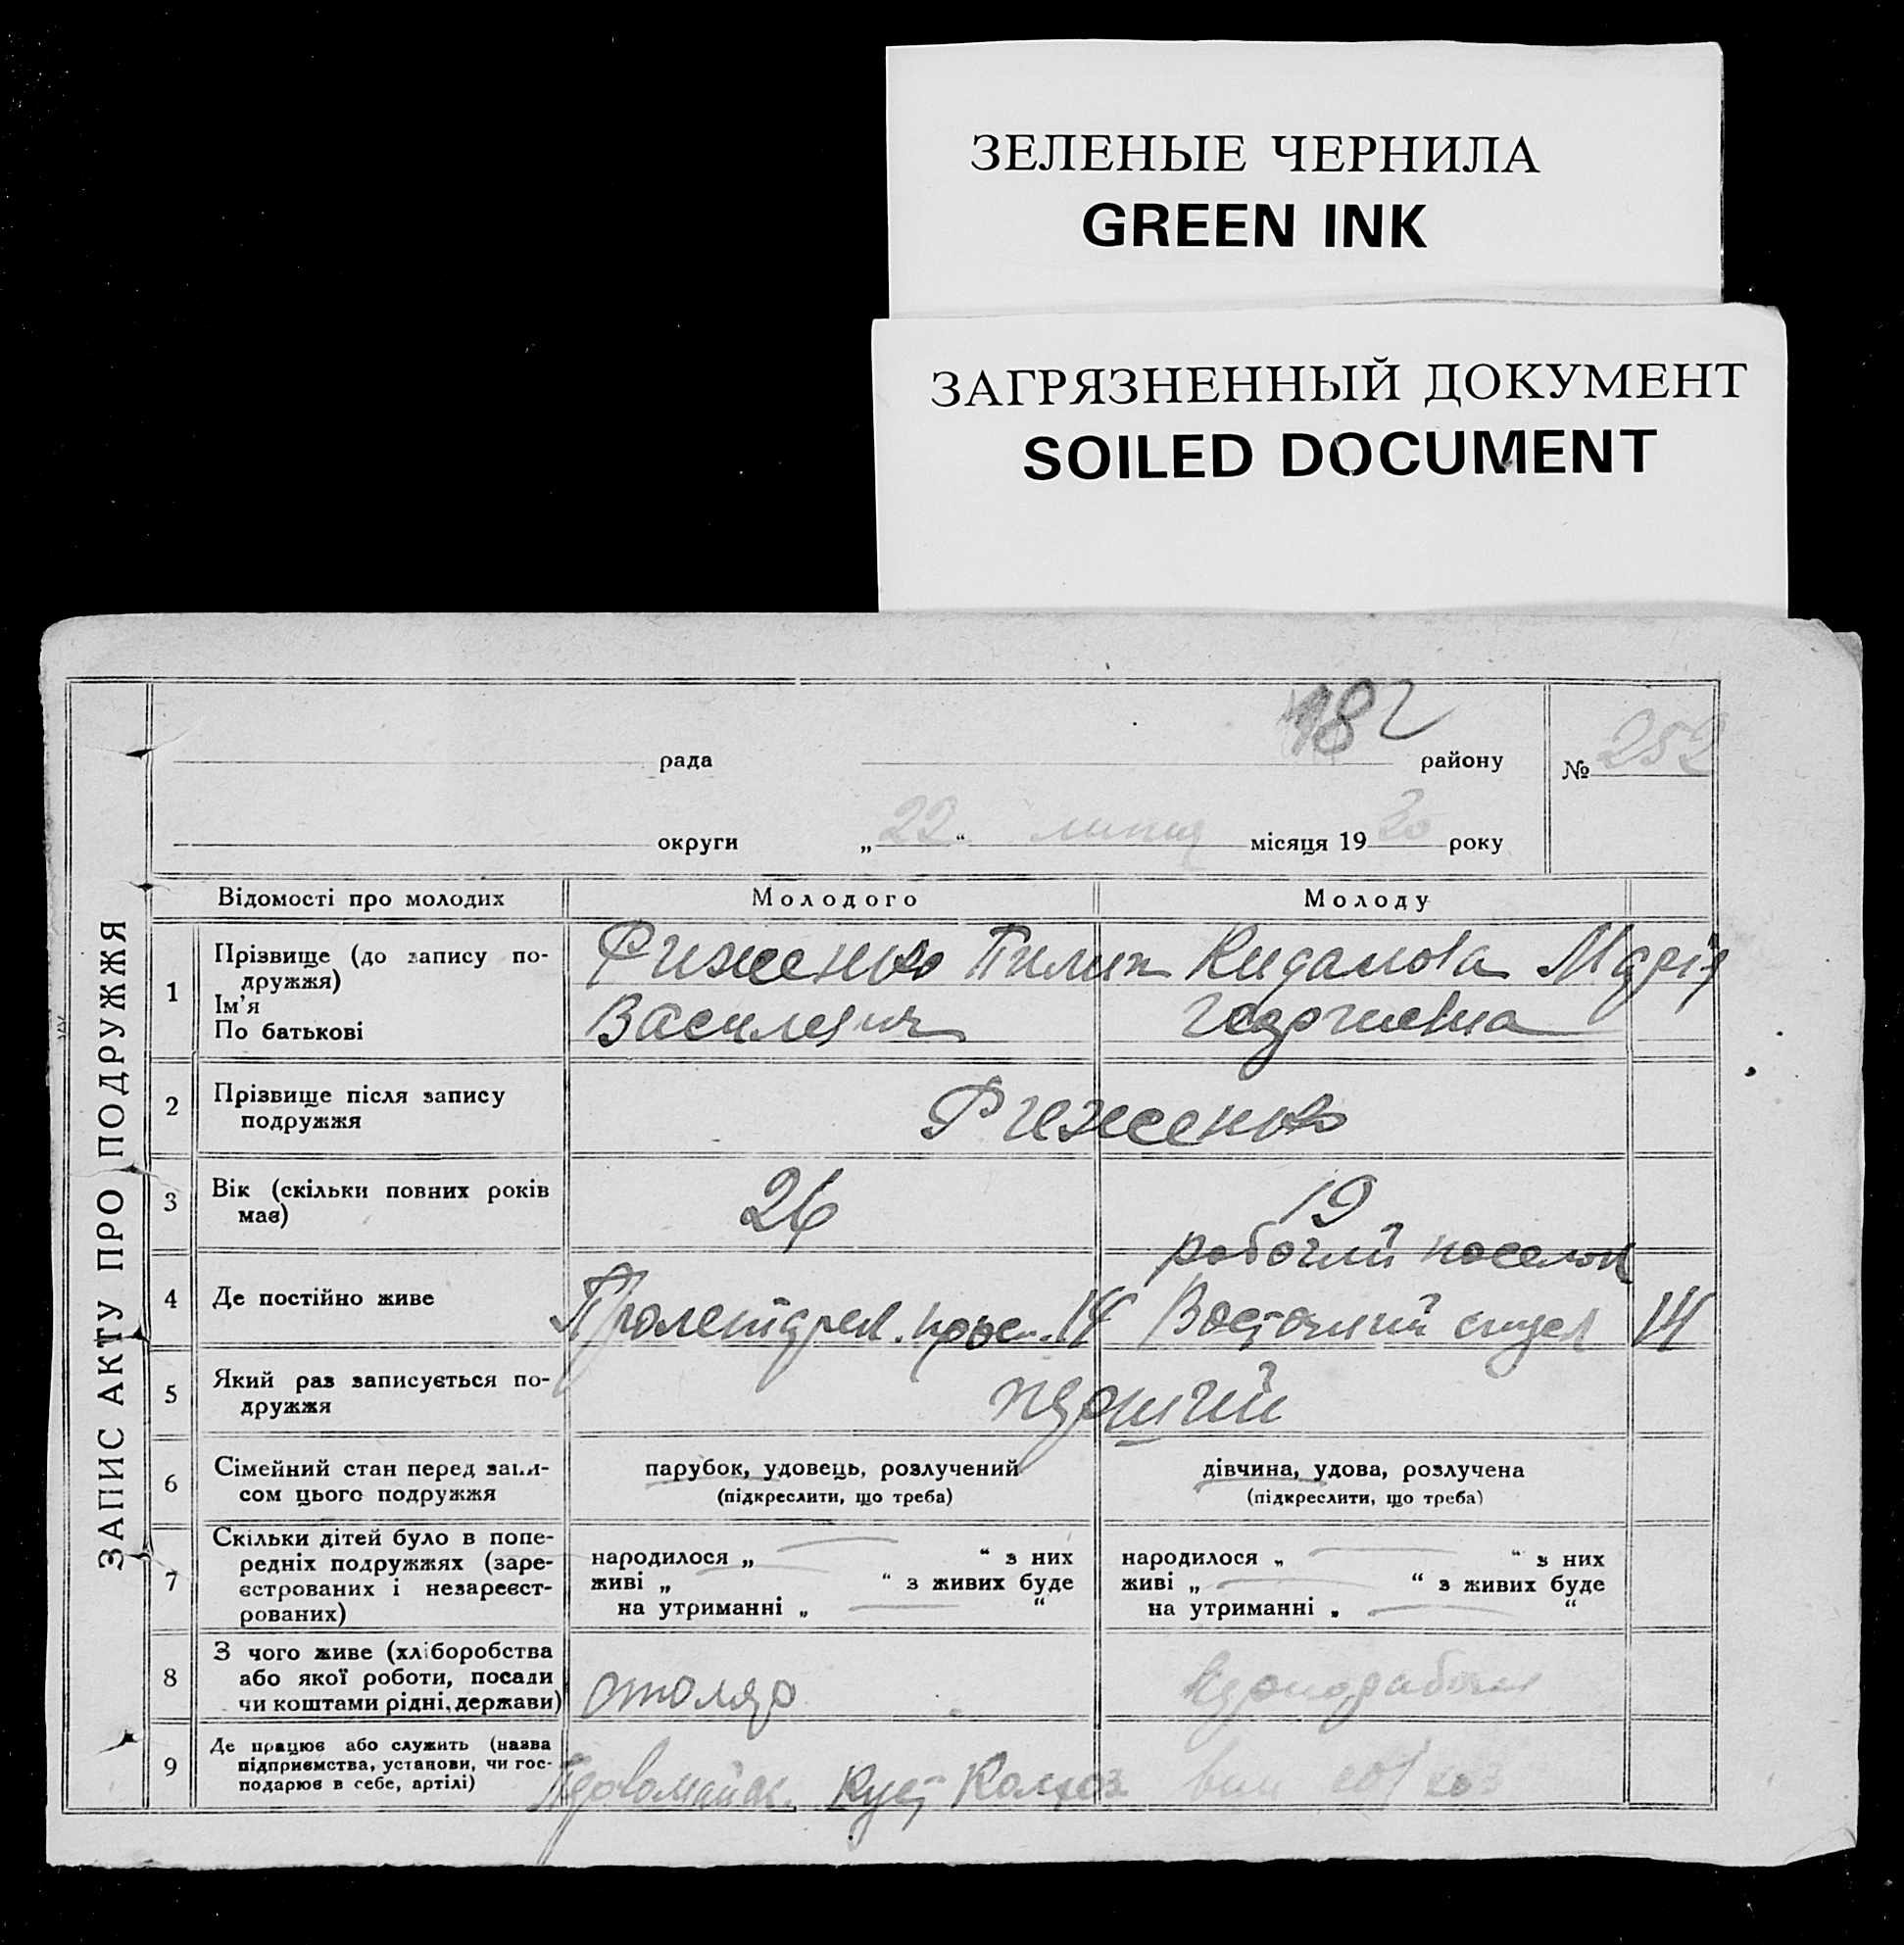 ЗЕЛЕНЫЕ ЧЕРНИЛА
GREEN INK
ЗАГРЯЗНЕННЫЙ ДОКУМЕНТ
SOILED DOCUMENT
ЗАПИС АКТУ ПРО ПОДРУЖЖЯ
182
рада району № 252
округи „22“ липня місяця 1930 року
Відомості про молодих Молодого Молоду
1 Прізвище (до запису по-
дружжя)
Ім'я
По батькові
Риженко Пилип
Василевич
Марія
Георгиевна
2 Прізвище після запису
подружжя
Риженко
3 Вік (скільки повних років
має)
26 19
4 Де постійно живе
Пролетарск. просп. 14
рабочий поселок
14
5 Який раз записується по-
дружжя
перший
6 Сімейний стан перед запи-
сом цього подружжя
парубок, удовець, розлучений
(підкреслити, що треба)
дівчина, удова, розлучена
(підкреслити, що треба)
7 Скільки дітей було в попе-
редніх подружжях (заре-
єстрованих і незареєст-
рованих)
народилося „ “ з них
живі „ “ з живих буде
на утриманні „ “
народилося „ “ з них
живі „ “ з живих буде
на утриманні „ “
8 З чого живе (хліборобства
або якої роботи, посади
чи коштами рідні, держави)
столяр
9 Де працює або служить (назва
підприємства, установи, чи гос-
подарює в себе, артілі)
Первомайск. Кущ Колхоз